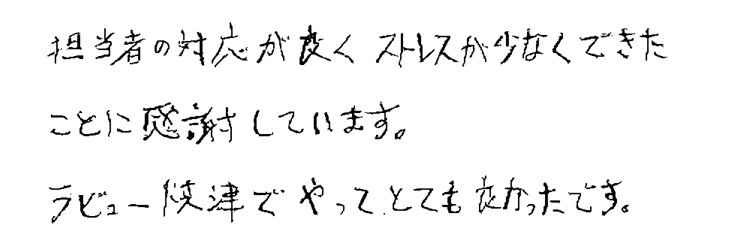 担当者の対応が良く ストレスが少なくできた
ことに感謝しています。
ラビュー焼津でやって とても良かったです。